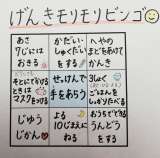 げんきモリモリビンゴ
あさ
7じには
おきる
かだい・
しゅくだい
をする
へやの
まどをあけて
かんき
そとに
でるときは
マスクをつける
せっけんで
手をあろう
3しょく
ごはんを
しっかりたべる
じゆう
じかん
よる
10じまえに
ねる
おうちでできる
うんどう
をする